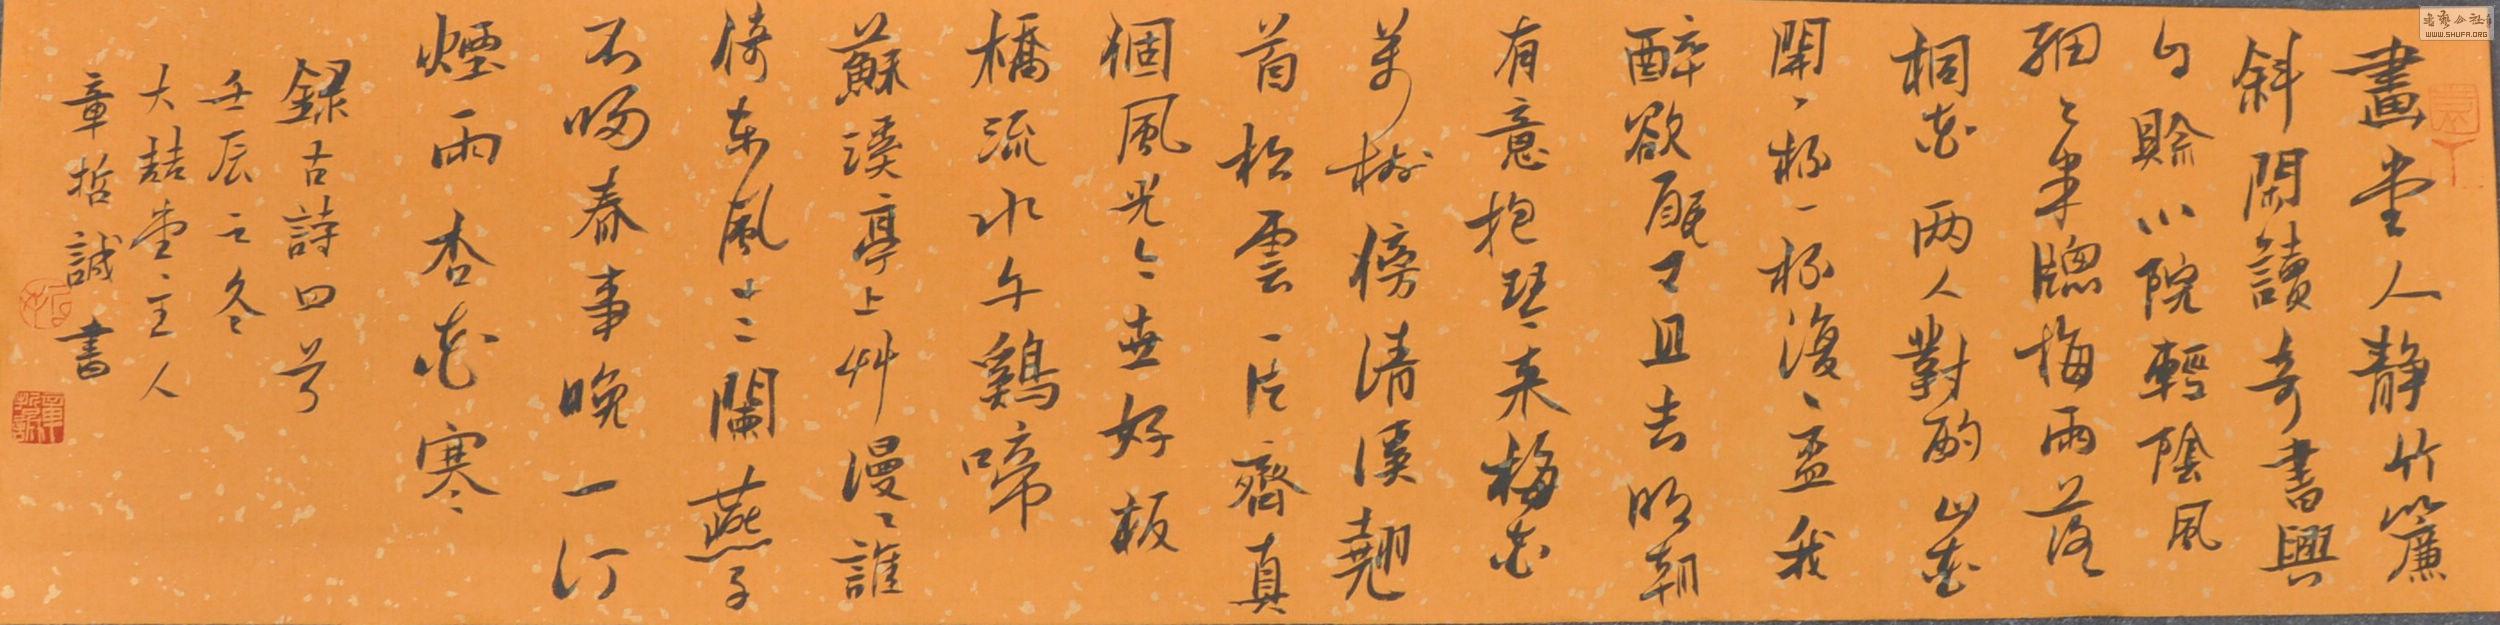 畫堂人静竹簾
斜閑讀奇書興
自賒小院輕陰風
細々半牕梅雨落
桐花两人對酌山花
開一杯一杯復一盃我
醉欲眠卿且去明朝
有意抱琴来梅花
萬樹傍清溪翹
首松雲一片齊真
個風光好板
橋流水午鷄啼
蘇溪亭上艸漫々誰
倚東風十二闌燕子
不歸春事晚一汀
煙雨杏花寒
錄古詩四首
壬辰之冬
大喆堂主人
章哲誠書
章哲誠
書藝公社
WWW.SHUFA.ORG